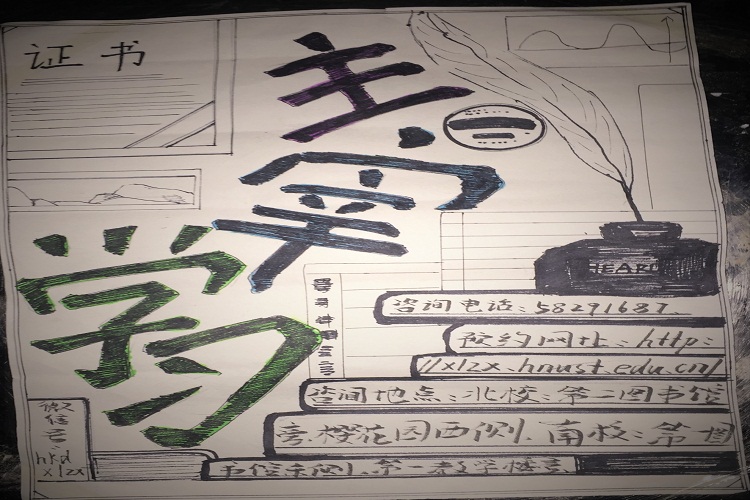 证书
主
学
习
咨询电话:58291687.
预约网址:http:
//xlzx.hnust.edu.cn/
咨询地点:北校:第二图书馆
旁.樱花园西侧.南校:第一图
书馆东侧.第一教学楼
微
信
号
hkd
xlzx